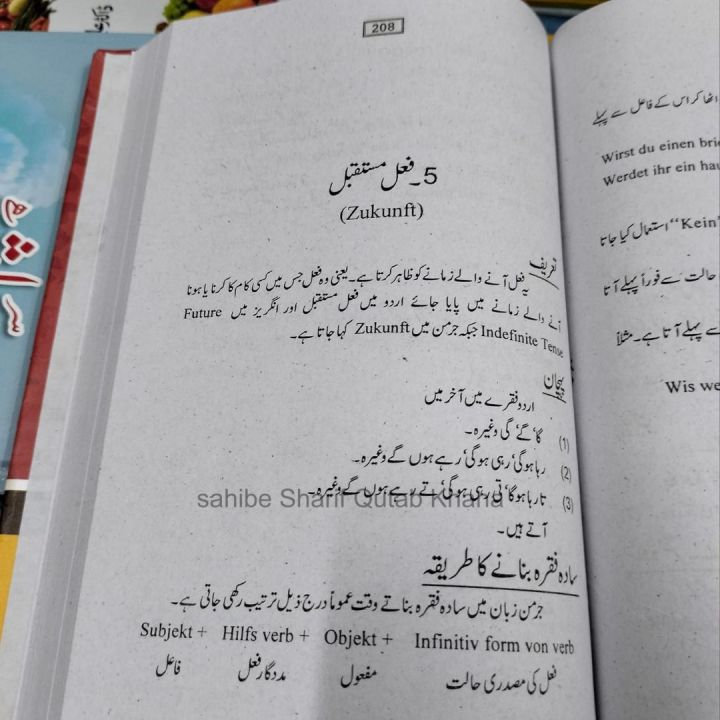 208
5۔ فعل مستقبل
(Zukunft)
تعریف
یہ فعل آنے والے زمانے کو ظاہر کرتا ہے۔ یعنی وہ فعل جس میں کسی کام کا کرنا یا ہونا
آنے والے زمانے میں پایا جائے اردو میں فعل مستقبل اور انگریز میں Future
Indefinite Tense جبکہ جرمن میں Zukunft کہا جاتا ہے۔
پہچان
اردو فقرے میں آخر میں
(1) گا' گے' گی وغیرہ۔
(2) رہا ہوگی' رہی ہوگی' رہے ہوں گے وغیرہ۔
(3) تا رہا ہوگا' تی رہی ہوگی' تے رہے ہوں گے وغیرہ۔
آتے ہیں۔
sahibe Sharif Qutab Khana
سادہ فقرہ بنانے کا طریقہ
جرمن زبان میں سادہ فقرہ بناتے وقت عموماً درج ذیل ترتیب رکھی جاتی ہے۔
Subjekt + Hilfs verb + Objekt + Infinitiv form von verb
فاعل مددگار فعل مفعول فعل کی مصدری حالت
اٹھا کر اس کے فاعل سے پہلے
Wirst du einen bri
Werdet ihr ein hau
"Kein" استعمال کیا جاتا
حالت سے فوراً پہلے آتا
سے پہلے آتا ہے۔ مثلاً
Wis we